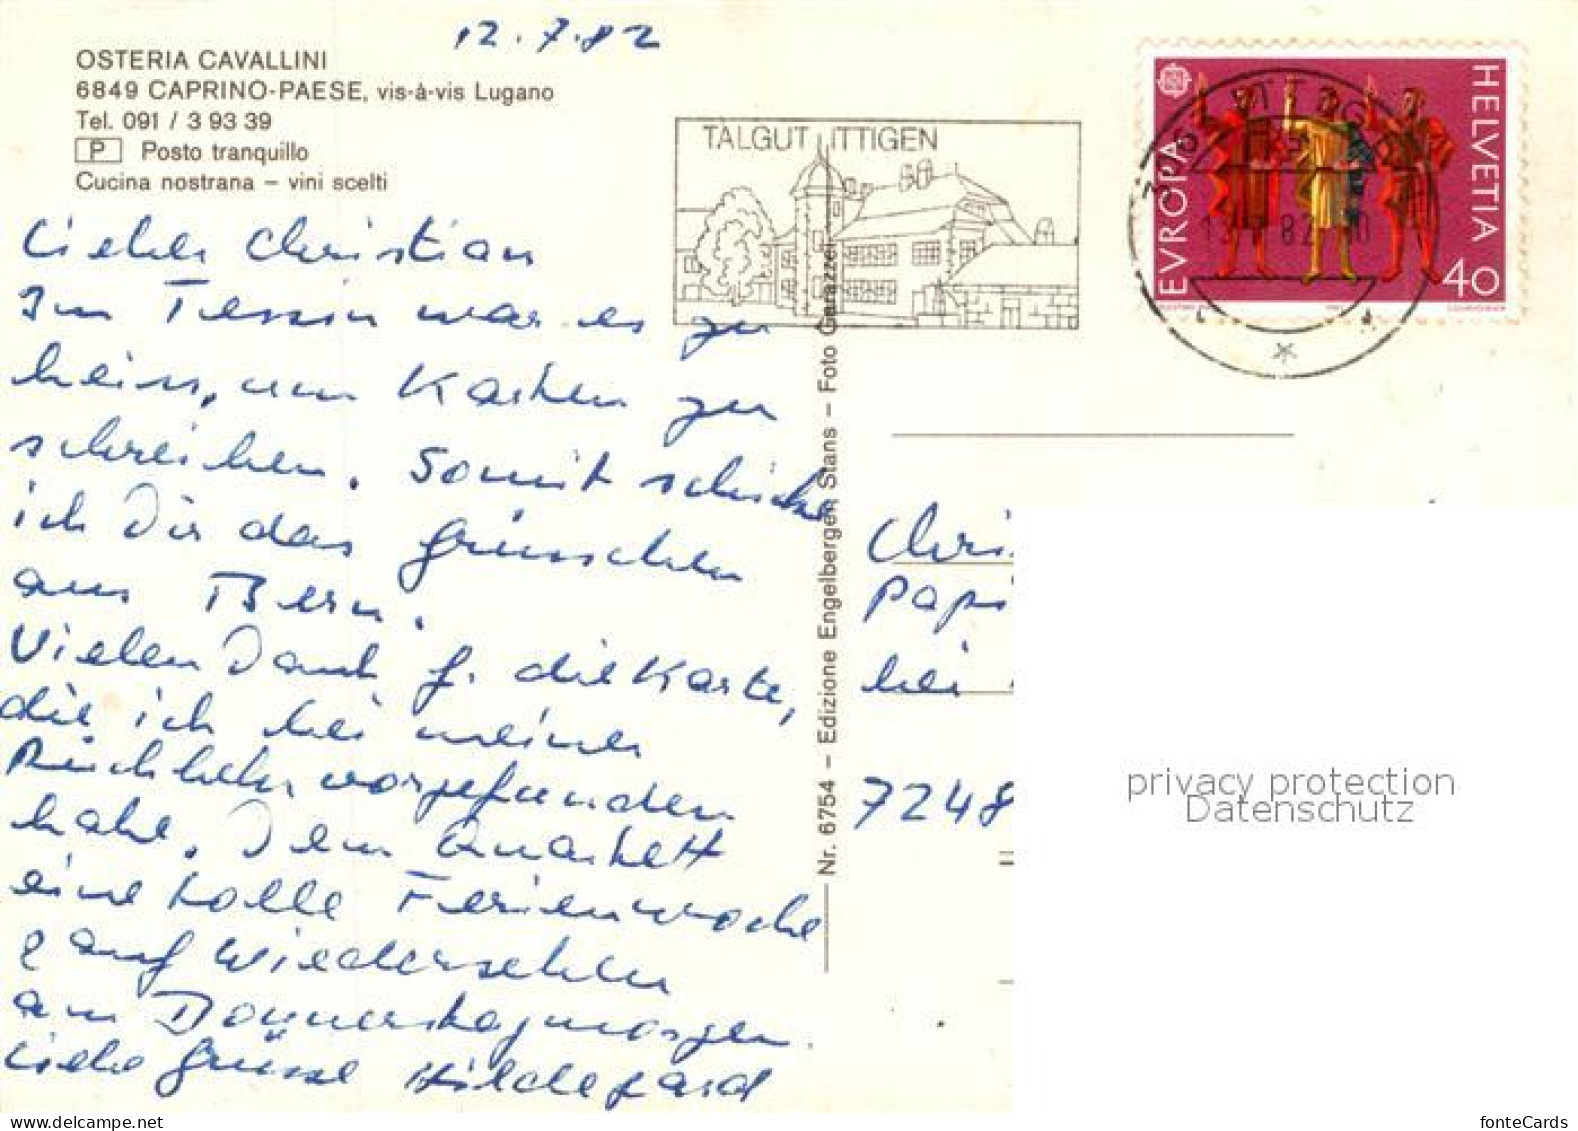 12.7.82
OSTERIA CAVALLINI
6849 CAPRINO-PAESE, vis-à-vis Lugano
Tel. 091 / 3 93 39
P Posto tranquillo
Cucina nostrana – vini scelti
TALGUT ITTIGEN
EVROPA
HELVETIA
40
Lieber Christian
Im Tessin war es zu
heiss, um Karten zu
schreiben. Somit schicke
ich Dir das Grüsschen
aus Bern.
Vielen Dank f. die Karte,
die ich bei meiner
Rückkehr vorgefunden
habe. Dem Quartett
eine tolle Ferienwoche
& auf Wiedersehen
am Donnerstagmorgen.
Liebe Grüsse Hildegard
Nr. 6754 – Edizione Engelberger, Stans – Foto Garazzei
Chris
Papi
bei
7248
privacy protection
Datenschutz
www.delcampe.net
fonteCards